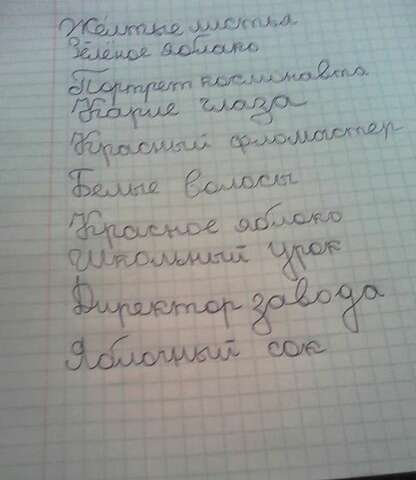 Жёлтые листья
Зелёное яблоко
Портрет космонавта
Карие глаза
Красный фломастер
Белые волосы
Красное яблоко
Школьный урок
Директор завода
Яблочный сок